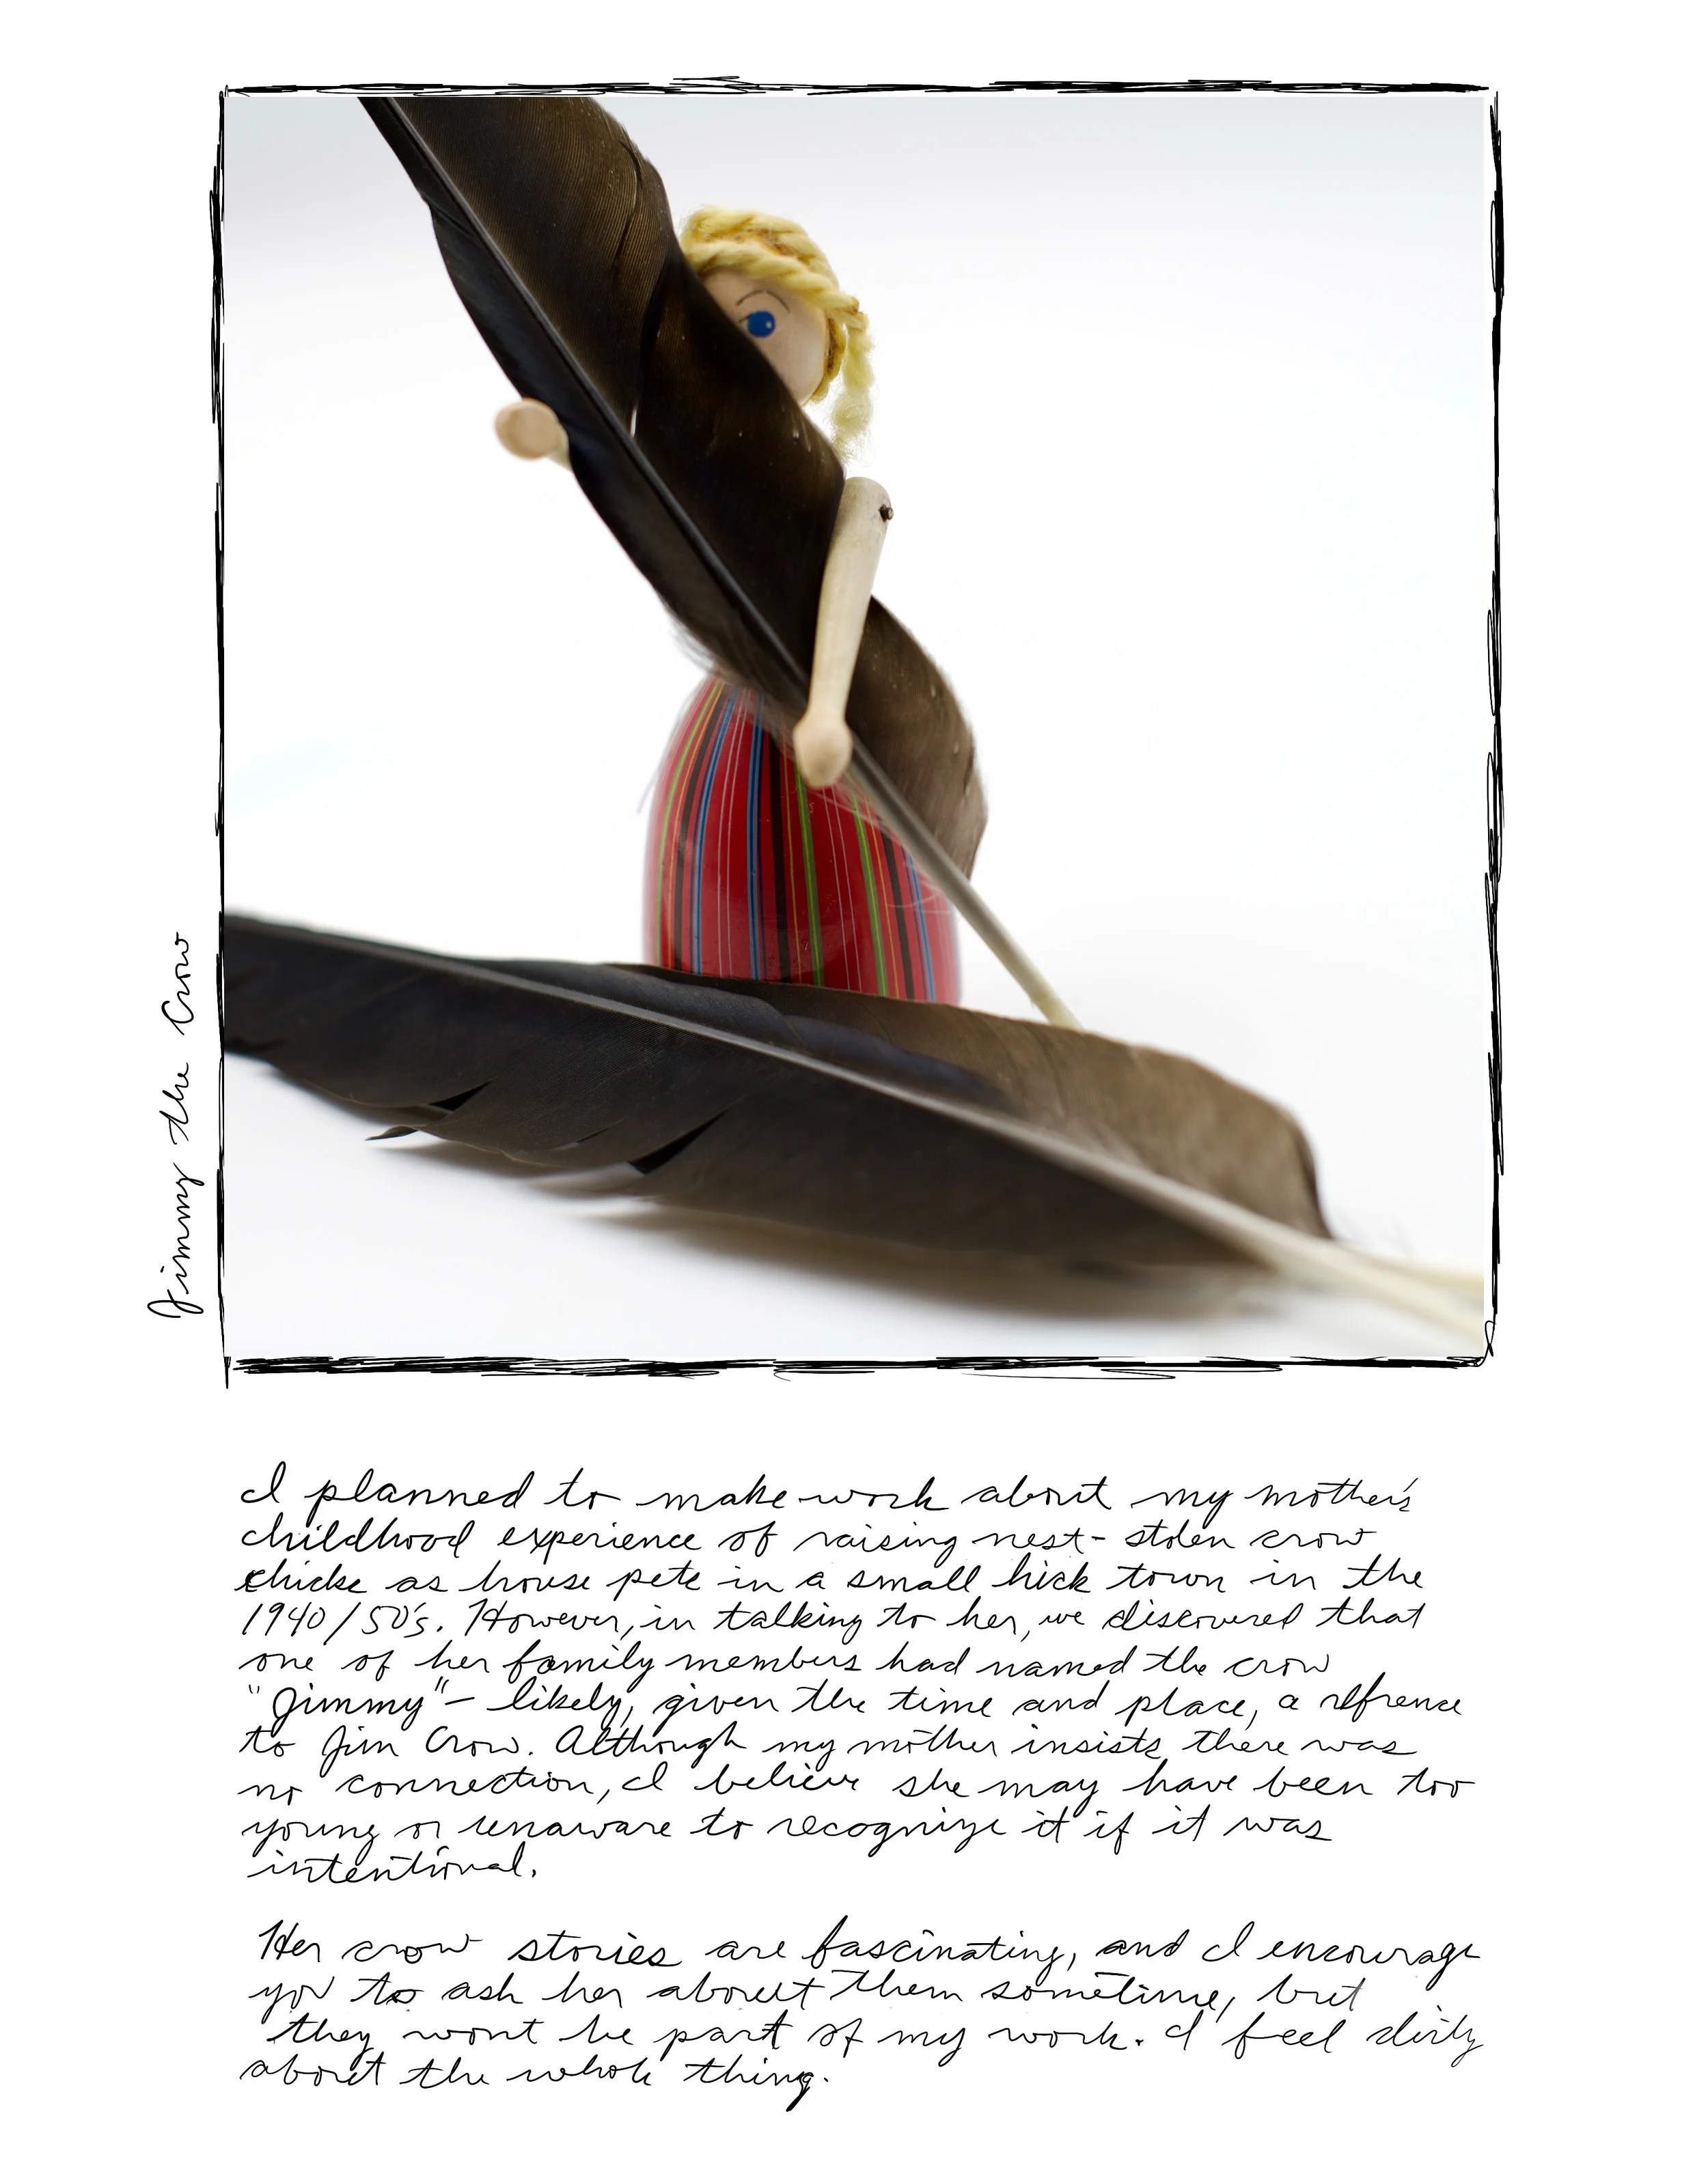 Jimmy the Crow
I planned to make work about my mother's
childhood experience of raising nest-stolen crow
chicks as house pets in a small hick town in the
1940/50's. However, in talking to her, we discovered that
one of her family members had named the crow
"Jimmy"– likely, given the time and place, a refrence
to Jim Crow. Although my mother insists there was
no connection, I believe she may have been too
young or unaware to recognize it if it was
intentional.
Her crow stories are fascinating, and I encourage
you to ask her about them sometime, but
they wont be part of my work. I feel dirty
about the whole thing.